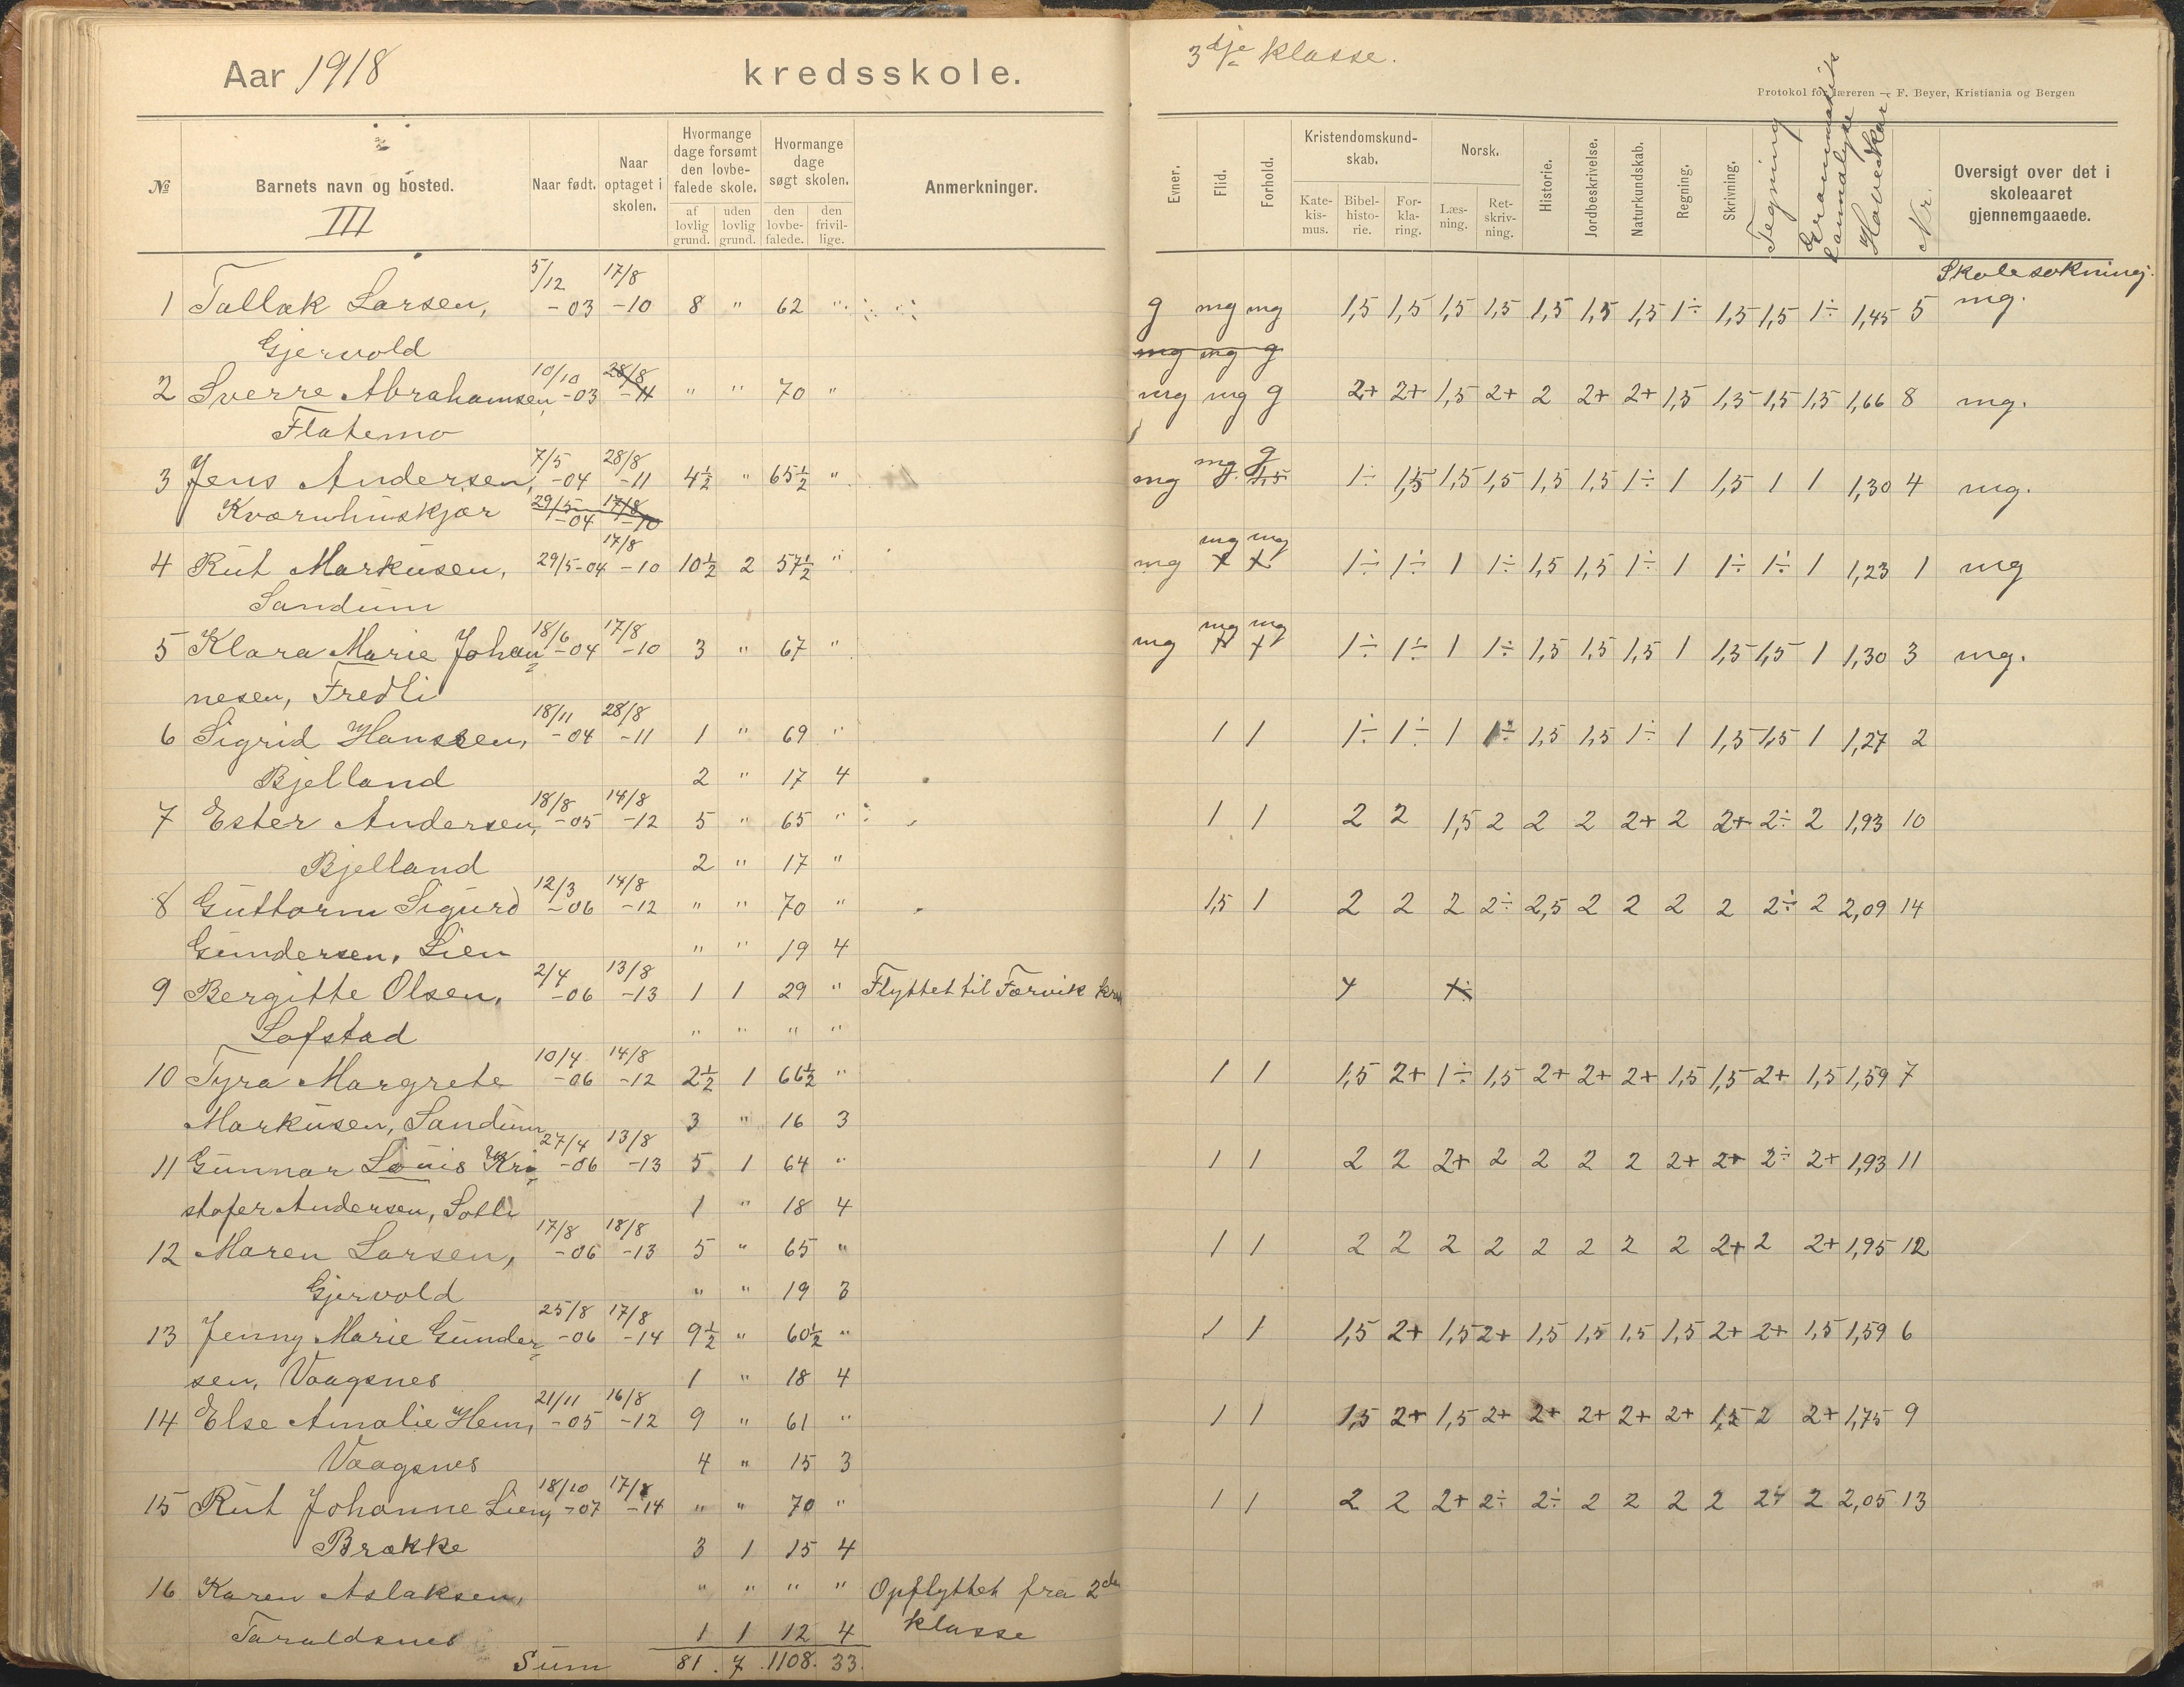 Aar 1918 kredsskole.
3dje klasse.
Protokol for læreren — F. Beyer, Kristiania og Bergen
№ Barnets navn og bosted. III Naar født. Naar optaget i skolen. Hvormange dage forsømt den lovbefalede skole. af lovlig grund. uden lovlig grund. Hvormange dage søgt skolen. den lovbefalede. den frivillige. Anmerkninger.
Evner. Flid. Forhold. Kristendomskundskab. Katekismus. Bibelhistorie. Forklaring. Norsk. Læsning. Retskrivning. Historie. Jordbeskrivelse. Naturkundskab. Regning. Skrivning. Tegning Grammatik Hovedkar Nr. Oversigt over det i skoleaaret gjennemgaaede.
Skolesøkning.
5/12 17/8
1 Tallak Larsen, -03 -10 8 " 62 " g mg mg 1,5 1,5 1,5 1,5 1,5 1,5 1,5 1÷ 1,5 1,5 1÷ 1,45 5 mg.
Gjervold mg mg g
10/10 28/8
2 Sverre Abrahamsen, -03 -11 " " 70 " mg mg g 2+ 2+ 1,5 2+ 2 2+ 2+ 1,5 1,5 1,5 1,5 1,66 8 mg.
Flatemo
7/5 28/8 mg g
3 Jens Andersen, -04 -11 4½ " 65½ " mg g. 1,5 1÷ 1,5 1,5 1,5 1,5 1,5 1÷ 1 1,5 1 1 1,30 4 mg.
Kværnhuskjær 29/5 -04 17/8 -10
17/8 mg mg
4 Rut Markusen, 29/5-04 -10 10½ 2 57½ " mg 1÷ 1÷ 1 1÷ 1,5 1,5 1÷ 1 1÷ 1÷ 1 1,23 1 mg
Sandum
18/6 17/8 mg mg
5 Klara Marie Johan- -04 -10 3 " 67 " mg 1÷ 1÷ 1 1÷ 1,5 1,5 1,5 1 1,5 1,5 1 1,30 3 mg.
nesen, Fredli
18/11 28/8
6 Sigrid Hanssen, -04 -11 1 " 69 " 1 1 1÷ 1÷ 1 1÷ 1,5 1,5 1÷ 1 1,5 1,5 1 1,27 2
Bjelland 2 " 17 4
18/8 14/8
7 Ester Andersen, -05 -12 5 " 65 " 1 1 2 2 1,5 2 2 2 2+ 2 2+ 2÷ 2 1,93 10
Bjelland 2 " 17 "
12/3 14/8
8 Guttorm Sigurd -06 -12 " " 70 " 1,5 1 2 2 2 2÷ 2,5 2 2 2 2 2÷ 2 2,09 14
Gundersen, Lien " " 19 4
2/4 13/8
9 Bergitte Olsen, -06 -13 1 1 29 " Flyttet til Færvik
Lofstad " " " "
10/4 14/8
10 Tyra Margrete -06 -12 2½ 1 66½ " 1 1 1,5 2+ 1÷ 1,5 2+ 2+ 2+ 1,5 1,5 2+ 1,5 1,59 7
Markusen, Sandum 3 " 16 3
27/4 13/8
11 Gunnar Louis Kri- -06 -13 5 1 64 " 1 1 2 2 2+ 2 2 2 2 2+ 2+ 2÷ 2+ 1,93 11
stofer Andersen, Solli 1 " 18 4
17/8 18/8
12 Maren Larsen, -06 -13 5 " 65 " 1 1 2 2 2 2 2 2 2 2 2+ 2 2+ 1,95 12
Gjervold " " 19 3
25/8 17/8
13 Jenny Marie Gunder- -06 -14 9½ " 60½ " 1 1 1,5 2+ 1,5 2+ 1,5 1,5 1,5 1,5 2+ 2+ 1,5 1,59 6
sen, Vaagsnes 1 " 18 4
21/11 16/8
14 Else Amalie Hem, -05 -12 9 " 61 " 1 1 1,5 2+ 1,5 2+ 2+ 2+ 2+ 2+ 1,5 2 2+ 1,75 9
Vaagsnes 4 " 15 3
18/10 17/8
15 Rut Johanne Lien, -07 -14 " " 70 " 1 1 2 2 2+ 2÷ 2÷ 2 2 2 2 2+ 2 2,05 13
Brække 3 1 15 4
16 Karen Aslaksen, " " " " Opflyttet fra 2den
Taraldsnes 1 1 12 4 klasse
Sum 81. 7. 1108. 33.